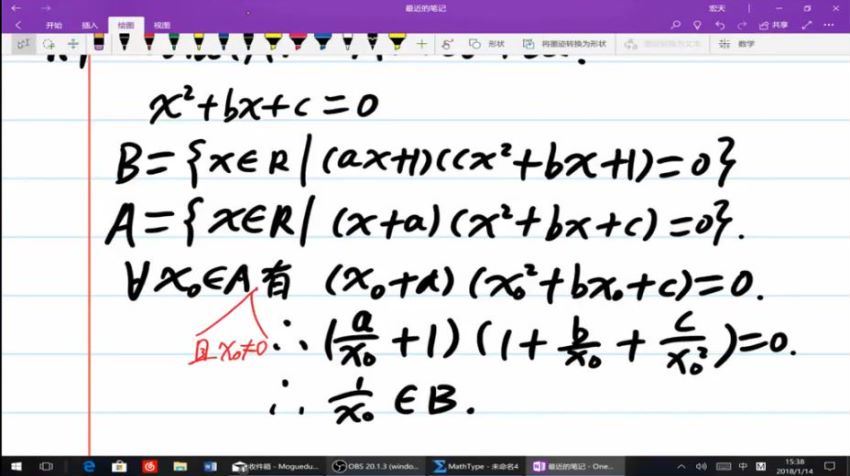 最近的笔记
宏天
开始 插入 绘图 视图
共享
形状 将墨迹转换为形状 墨迹转换为文本 数学
x²+bx+c=0
B={x∈R|(ax+1)(cx²+bx+1)=0}
A={x∈R|(x+a)(x²+bx+c)=0}.
∀x₀∈A有 (x₀+a)(x₀²+bx₀+c)=0.
且x₀≠0
∴(a/x₀+1)(1+b/x₀+c/x₀²)=0.
∴1/x₀∈B.
收件箱 - Moguedu...
OBS 20.1.3 (windo...
MathType - 未命名4
最近的笔记 - One...
中
M
15:38
2018/1/14